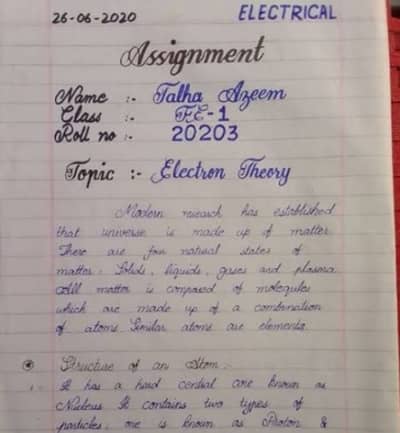 26-06-2020 ELECTRICAL
Assignment
Name :- Talha Azeem
Class :- FE-1
Roll no :- 20203
Topic :- Electron Theory
Modern reserch has established
that universe is made up of matter.
There are four natural states of
matter: Solids, liquids, gases and plasma.
All matter is composed of molequles
which are made up of a combination
of atoms. Similar atoms are elements.
Structure of an Atom:
It has a hard central core known as
Nucleus. It contains two types of
particles; one is known as Proton &